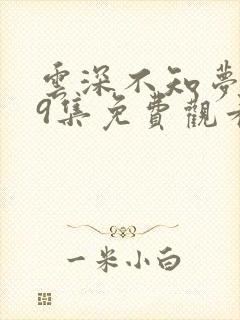 雲深不知夢
9集免費觀看
一米小白